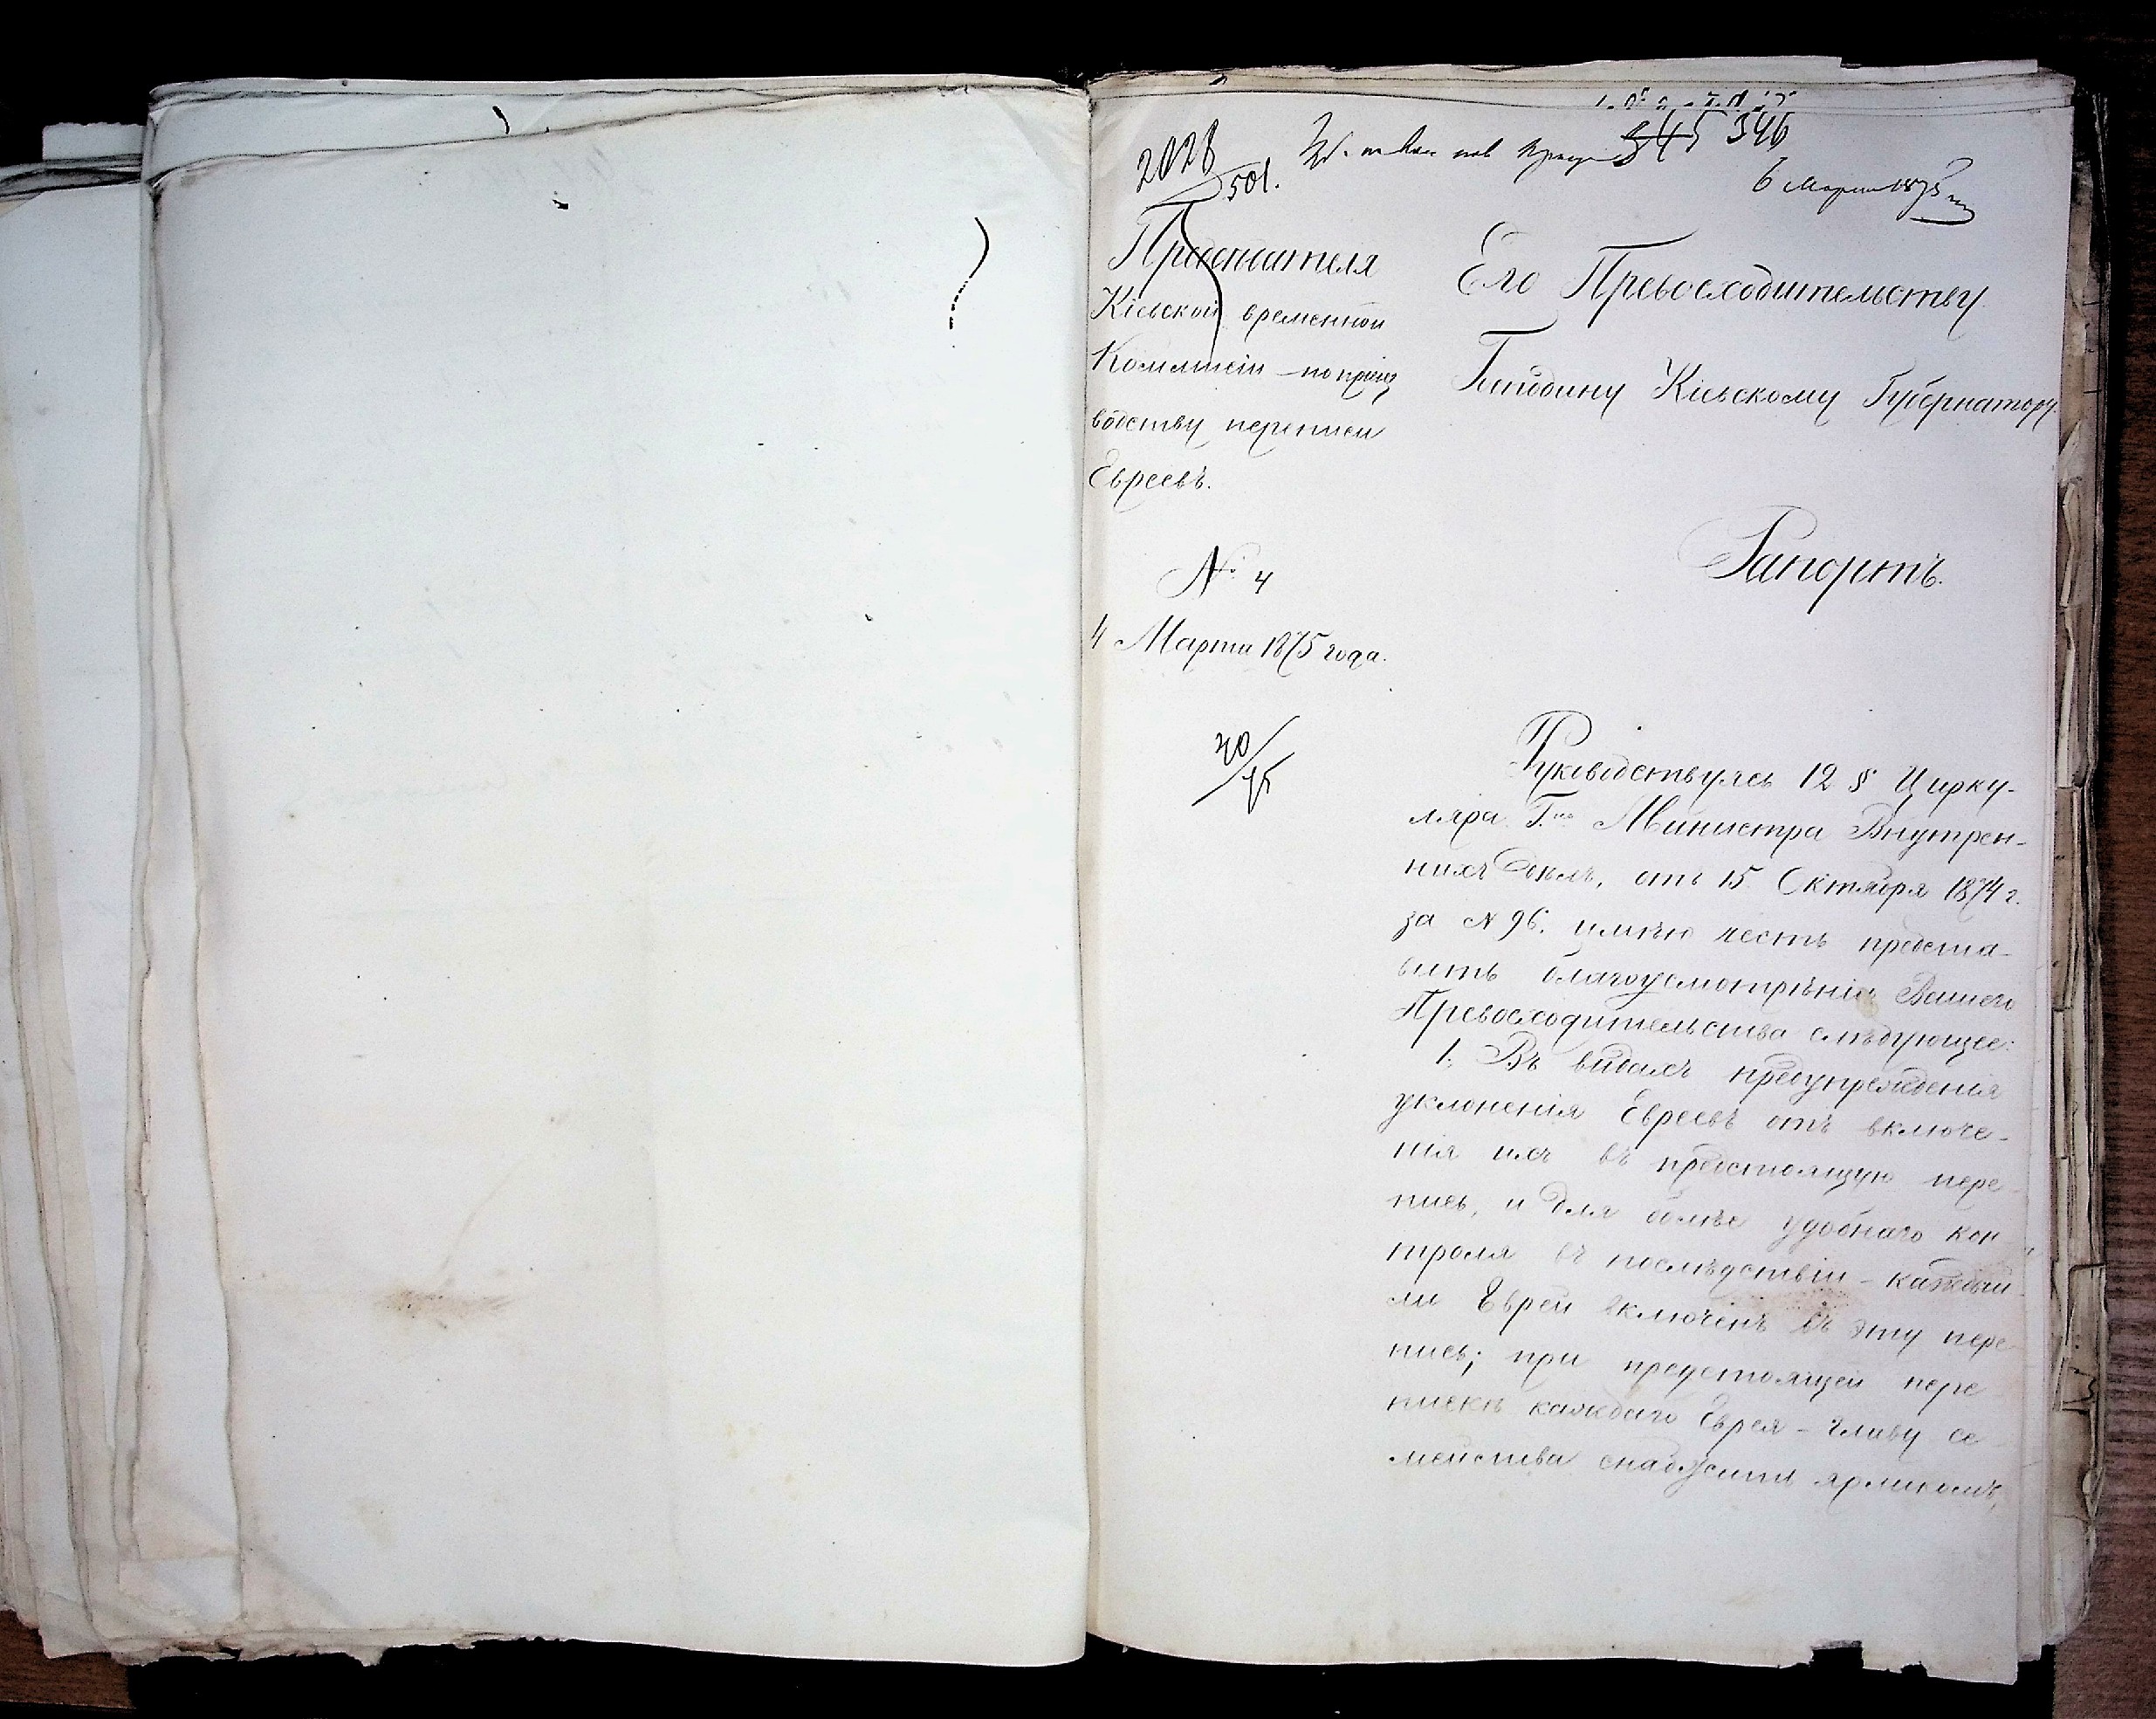 345 346
2028
501.
6 Марта 1875
Председателя
Кіевской временной
Коммисіи по произ
водству переписи
Евреевъ.
№ 4
4 Марта 1875 года.
Его Превосходительству
Господину Кіевскому Губернатору.
Рапортъ.
Руководствуясь 12 § Цирку-
ляра Г.на Министра Внутрен-
нихъ Дѣлъ, отъ 15 Октября 1874 г.
за N 96. имѣю честь предста-
вить благоусмотрѣнію Вашего
Превосходительства слѣдующее:
1; Въ видахъ предупрежденія
уклоненія Евреевъ отъ включе-
нія ихъ въ предстоящую пере-
пись, и для болѣе удобнаго кон
троля въ послѣдствіи - каждый-
ли Еврей включенъ въ эту пере
пись; при предстоящей пере
пискѣ каждаго Еврея - главу се
мейства снабжить ярлыкомъ,